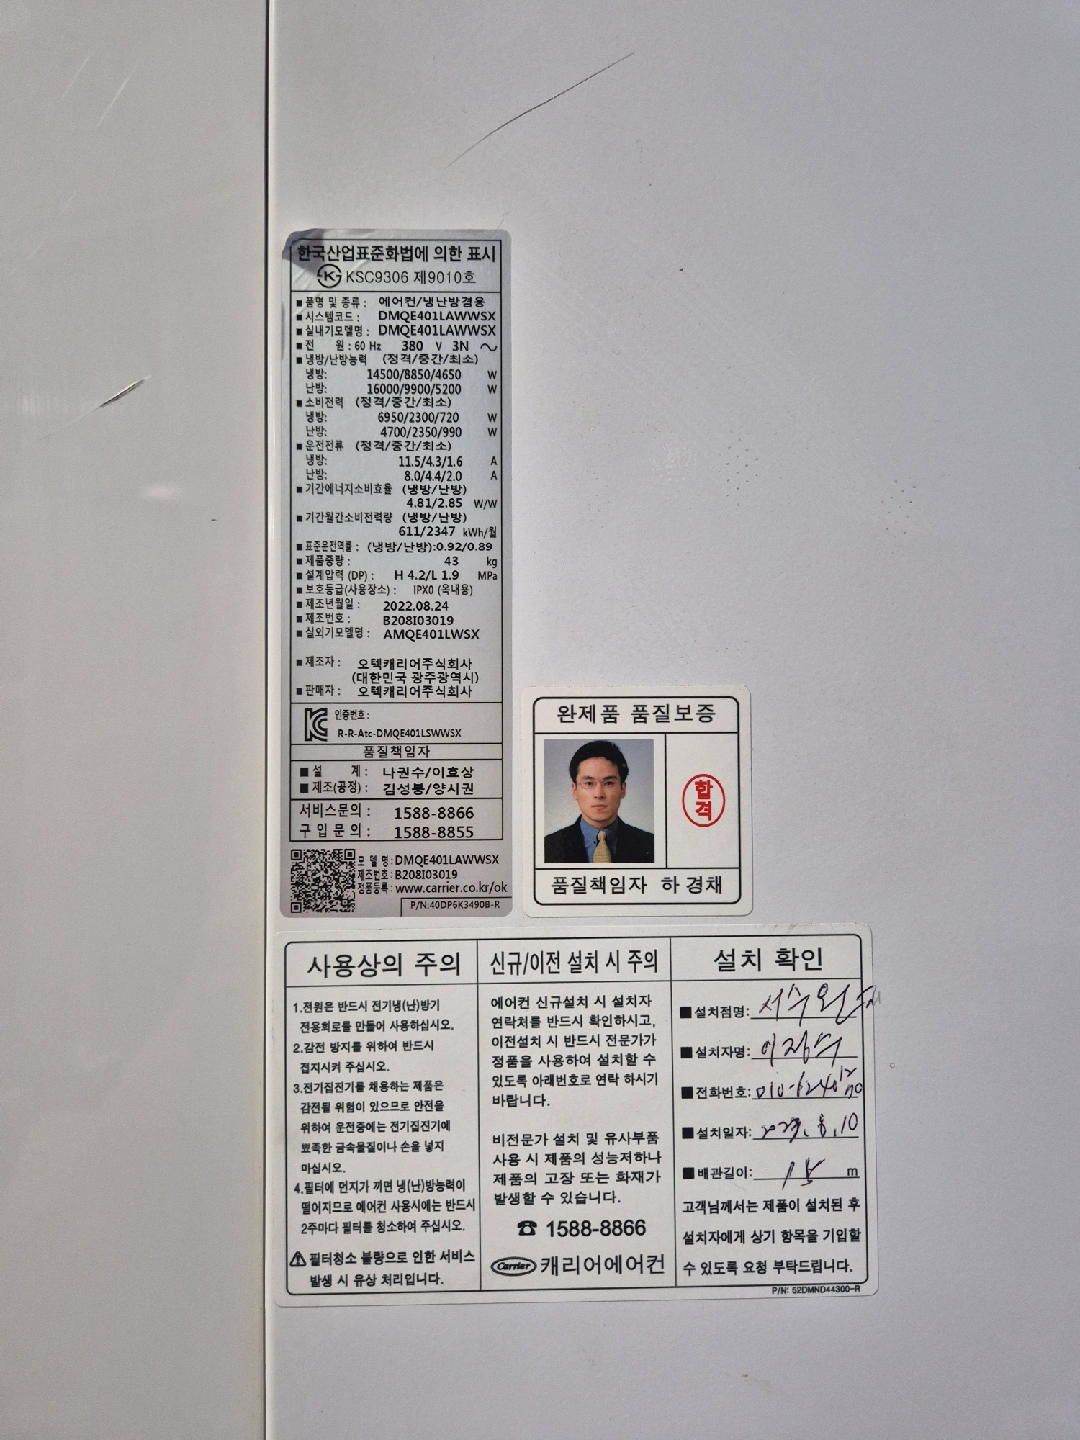 한국산업표준화법에 의한 표시
KSC9306 제9010호
■ 품명 및 종류 : 에어컨/냉난방겸용
■ 시스템코드 : DMQE401LAWWSX
■ 실내기모델명 : DMQE401LAWWSX
■ 전 원 : 60 Hz 380 V 3N ～
■ 냉방/난방능력 (정격/중간/최소)
냉방: 14500/8850/4650 W
난방: 16000/9900/5200 W
■ 소비전력 (정격/중간/최소)
냉방: 6950/2300/720 W
난방: 4700/2350/990 W
■ 운전전류 (정격/중간/최소)
냉방: 11.5/4.3/1.6 A
난방: 8.0/4.4/2.0 A
■ 기간에너지소비효율 (냉방/난방)
4.81/2.85 W/W
■ 기간월간소비전력량 (냉방/난방)
611/2347 kWh/월
■ 표준운전역률 : (냉방/난방):0.92/0.89
■ 제품중량 : 43 kg
■ 설계압력 (DP) : H 4.2/L 1.9 MPa
■ 보호등급(사용장소) : IPX0 (옥내용)
■ 제조년월일 : 2022.08.24
■ 제조번호 : B208I03019
■ 실외기모델명 : AMQE401LWSX
■ 제조자 : 오텍캐리어주식회사
(대한민국 광주광역시)
■ 판매자 : 오텍캐리어주식회사
인증번호 :
R-R-Atc-DMQE401LSWWSX
품질책임자
■ 설 계 : 나권수/이효상
■ 제조(공정) : 김성봉/양시권
서비스문의 : 1588-8866
구입문의 : 1588-8855
모 델 명 : DMQE401LAWWSX
제조번호 : B208I03019
정품등록 : www.carrier.co.kr/ok
P/N:40DP6K3490B-R
완제품 품질보증
합격
품질책임자 하경채
사용상의 주의
1.전원은 반드시 전기냉(난)방기
전용회로를 만들어 사용하십시오.
2.감전 방지를 위하여 반드시
접지시켜 주십시오.
3.전기집진기를 채용하는 제품은
감전될 위험이 있으므로 안전을
위하여 운전중에는 전기집진기에
뾰족한 금속물질이나 손을 넣지
마십시오.
4.필터에 먼지가 끼면 냉(난)방능력이
떨어지므로 에어컨 사용시에는 반드시
2주마다 필터를 청소하여 주십시오.
⚠필터청소 불량으로 인한 서비스
발생 시 유상 처리입니다.
신규/이전 설치 시 주의
에어컨 신규설치 시 설치자
연락처를 반드시 확인하시고,
이전설치 시 반드시 전문가가
정품을 사용하여 설치할 수
있도록 아래번호로 연락 하시기
바랍니다.
비전문가 설치 및 유사부품
사용 시 제품의 성능저하나
제품의 고장 또는 화재가
발생할 수 있습니다.
☎ 1588-8866
Carrier 캐리어에어컨
설치 확인
■설치점명:
■설치자명:
■전화번호:
■설치일자: 8.10
■배관길이: 15 m
고객님께서는 제품이 설치된 후
설치자에게 상기 항목을 기입할
수 있도록 요청 부탁드립니다.
P/N: 52DMND44300-R